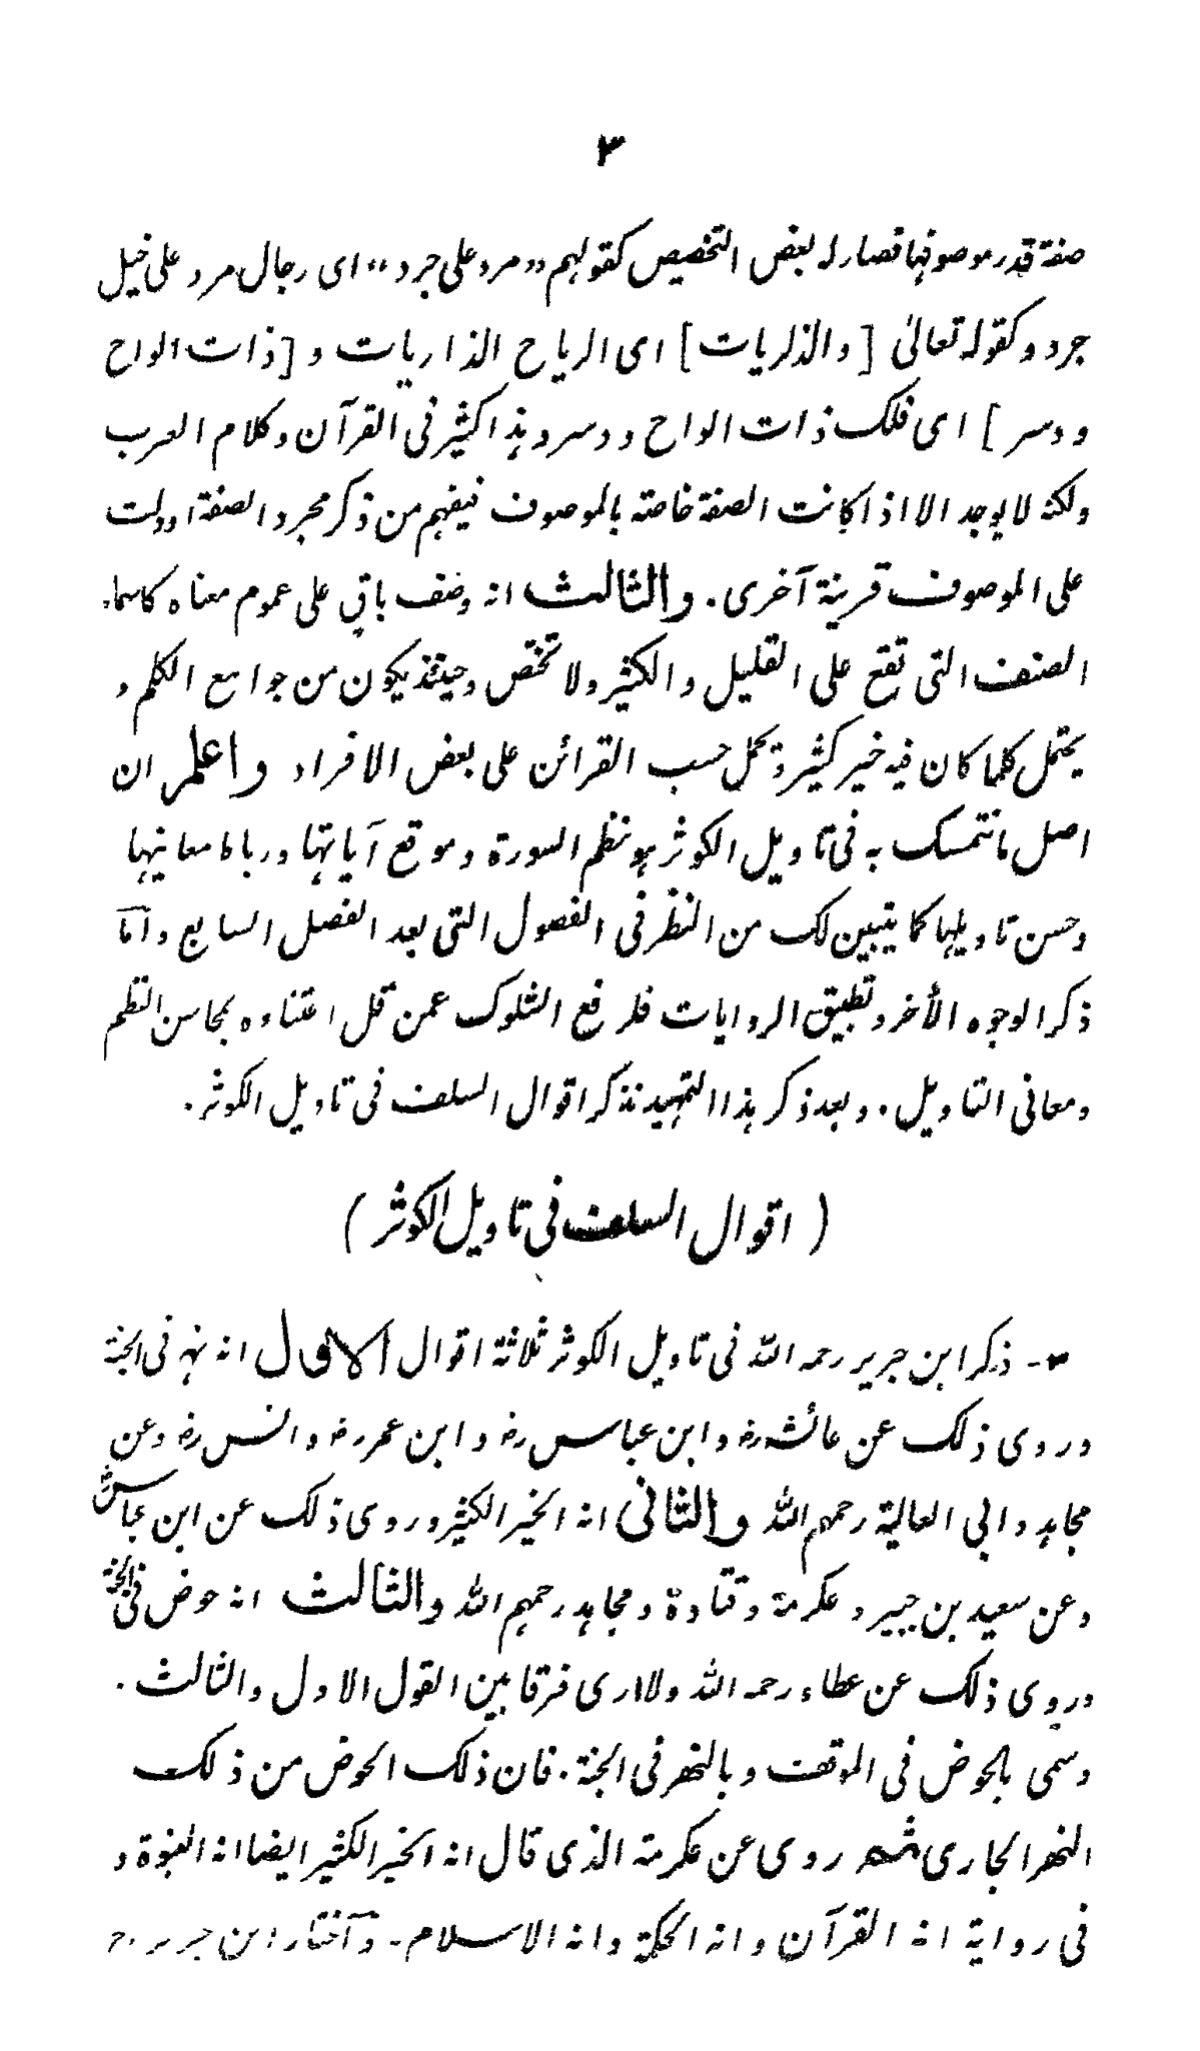 ٣
صفة قدر موصوفها فصار له بعض التخصيص كقولهم "مرد على جرد" اى رجال مرد على خيل
جرد وكقوله تعالىٰ [والذٰريات] اى الرياح الذاريات و [ذات الواح
ودسر] اى فلك ذات الواح ودسر وهذا كثير فى القرآن وكلام العرب
ولكنه لا يوجد الا اذا كانت الصفة خاصة بالموصوف فيفهم من ذكر مجرد الصفة او دلت
على الموصوف قرينة آخرى. والثالث انه وصف باق على عموم معناه كاسماء
الصنف التى تقع على القليل والكثير ولا تختص وحينئذ يكون من جوامع الكلم و
يحتمل كلما كان فيه خير كثير وتحمل حسب القرائن على بعض الافراد واعلم ان
اصل ما نتمسك به فى تاويل الكوثر هو نظم السورة وموقع آياتها ورباط معانيها
وحسن تاويلها كما يتبين لك من النظر فى الفصول التى بعد الفصل السابع وأما
ذكر الوجوه الأخر وتطبيق الروايات فلرفع الشكوك عمن قل اعتناءه بمحاسن النظم
ومعانى التاويل. وبعد ذكر هذا التمهيد نذكر اقوال السلف فى تاويل الكوثر.
(اقوال السلف فى تاويل الكوثر)
٣- ذكر ابن جرير رحمه الله فى تاويل الكوثر ثلاثة اقوال الاول انه نهر فى الجنة
وروى ذلك عن عائشة رض وابن عباس رض وابن عمر رض وانس رض وعن
مجاهد وابى العالية رحمهم الله والثانى انه الخير الكثير وروى ذلك عن ابن عباس رض
وعن سعيد بن جبير وعكرمة وقتادة ومجاهد رحمهم الله والثالث انه حوض فى الجنة
وروى ذلك عن عطاء رحمه الله ولا ارى فرقا بين القول الاول والثالث.
وسمى بالحوض فى الموقف وبالنهر فى الجنة. فان ذلك الحوض من ذلك
النهر الجارى ثم روى عن عكرمة الذى قال انه الخير الكثير ايضا انه النبوة و
فى رواية انه القرآن وانه الحكمة وانه الاسلام- وآختار ابن جرير رح